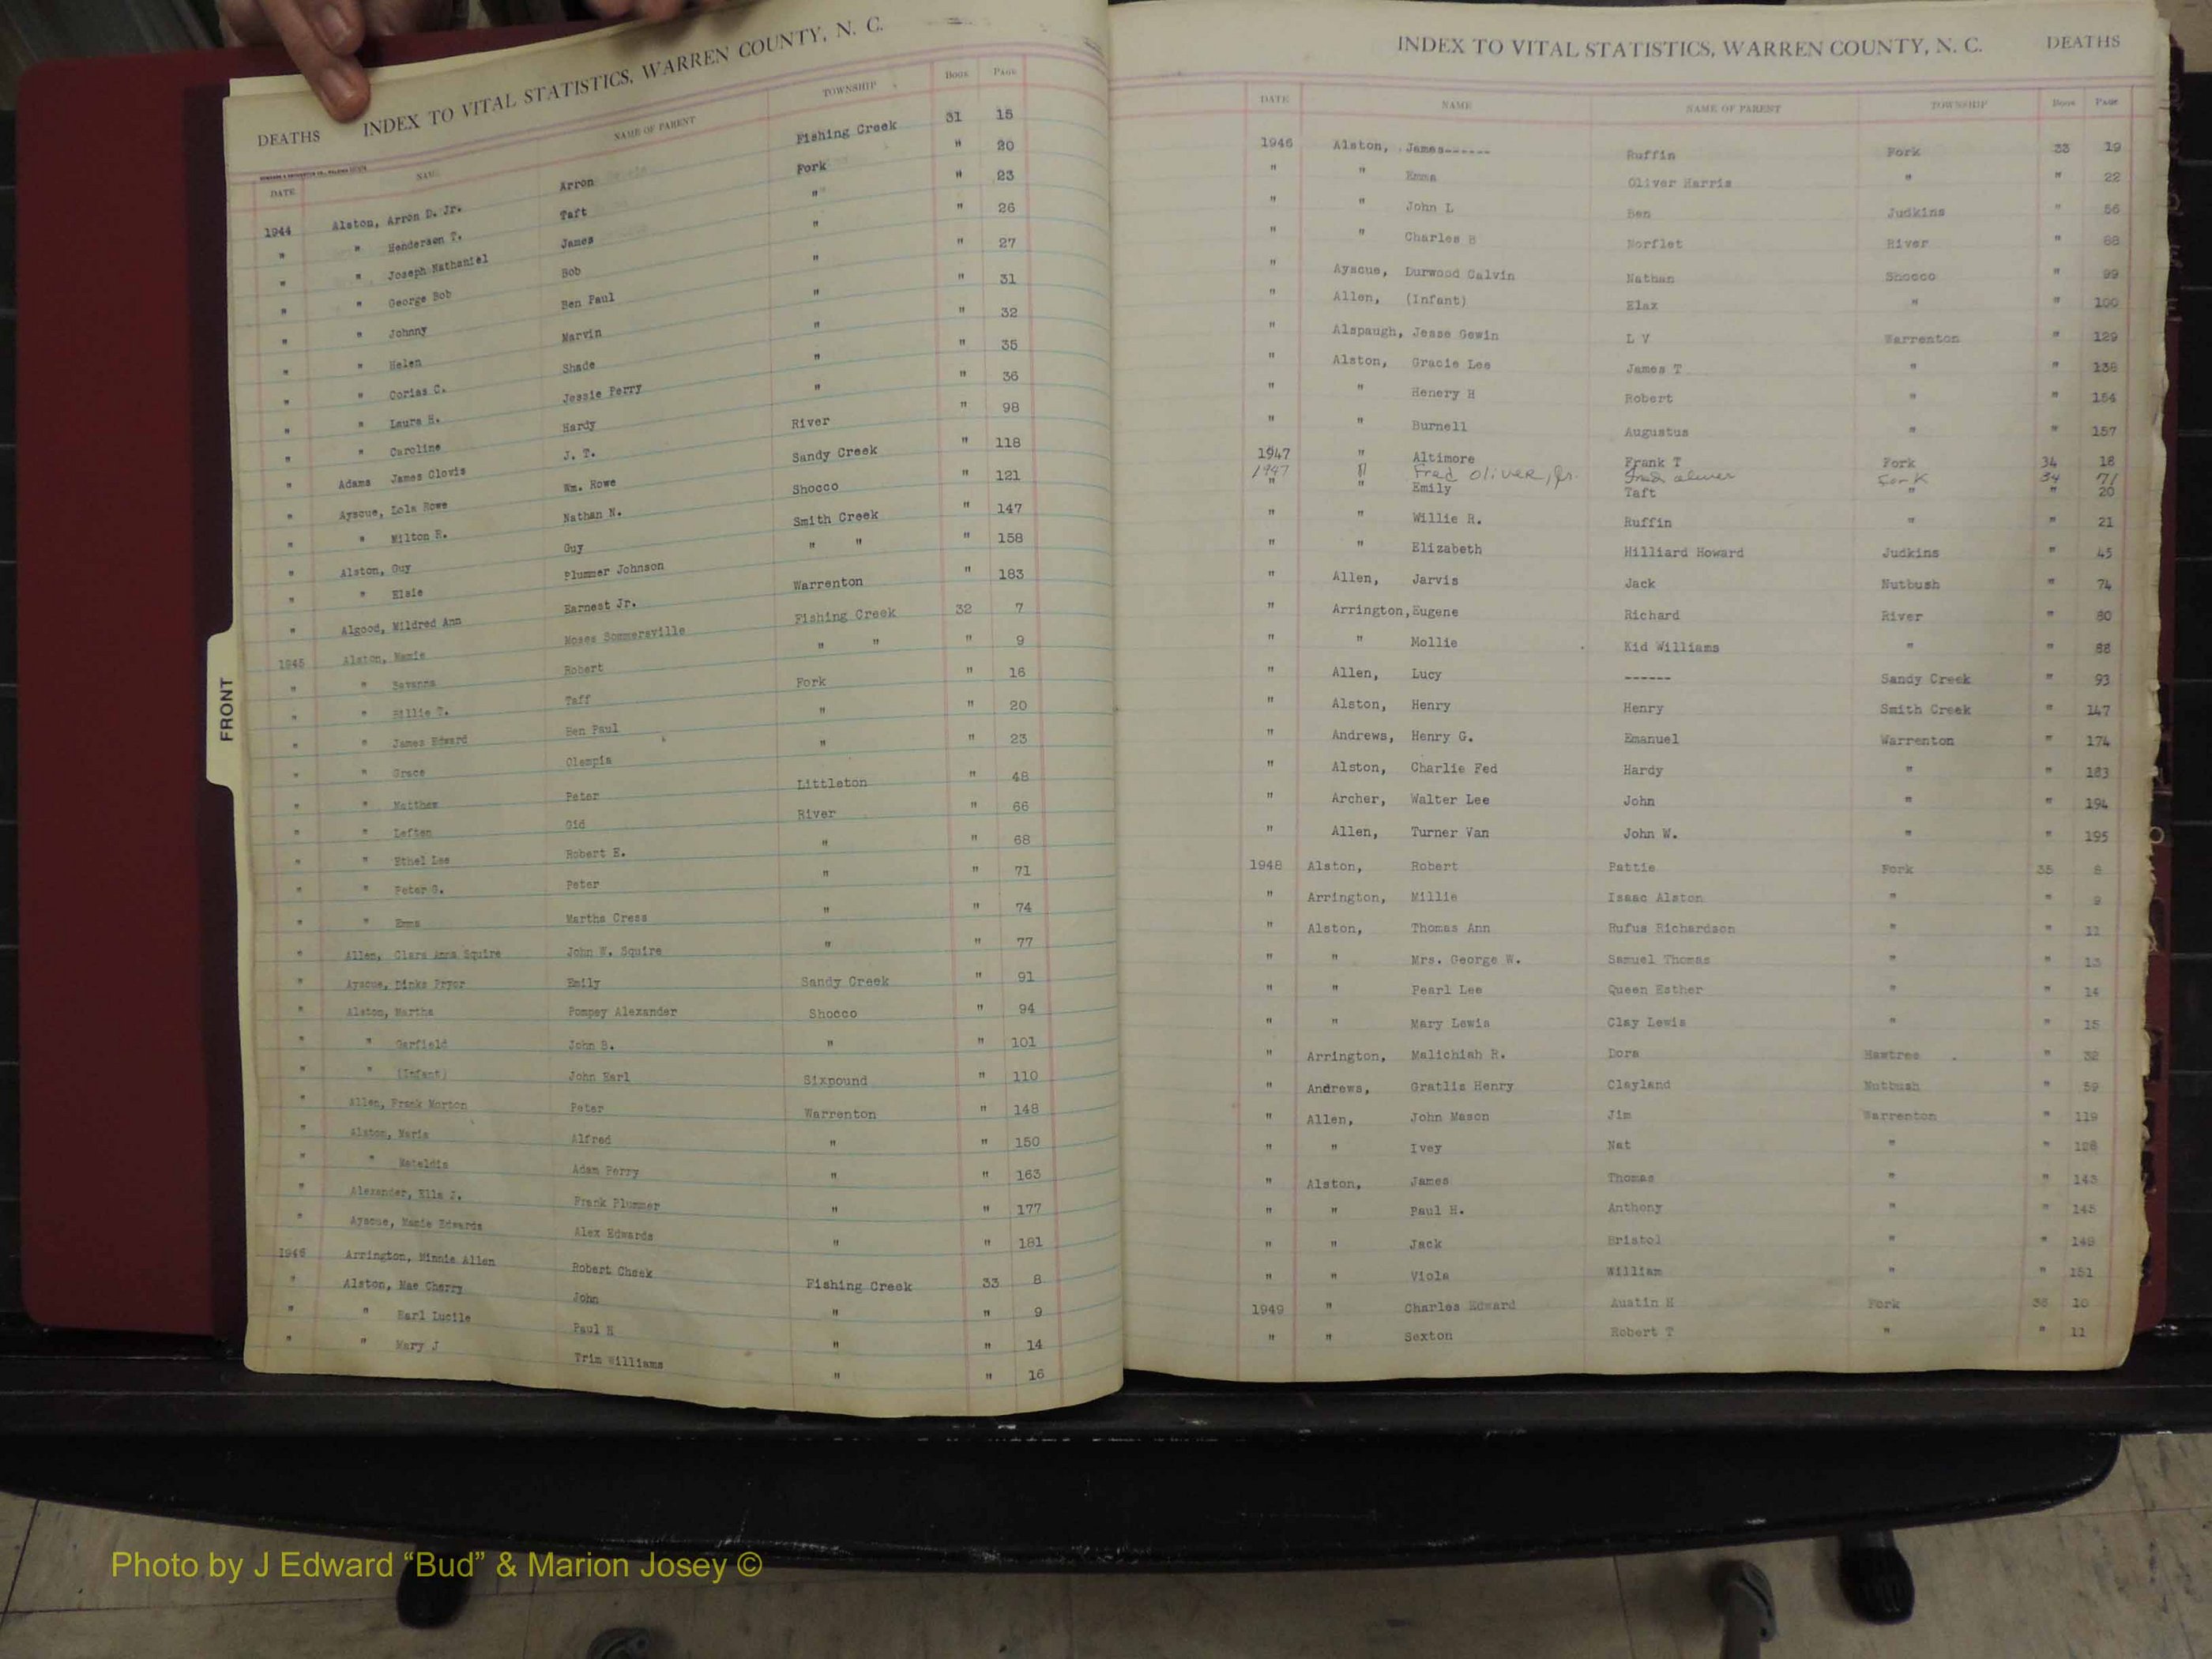 INDEX TO VITAL STATISTICS, WARREN COUNTY, N. C.
DEATHS
DATE NAME NAME OF PARENT TOWNSHIP BOOK PAGE
1944 Alston, Arron D. Jr. Arron Fishing Creek 31 15
" " Henderson T. Taft Fork " 20
" " Joseph Nathaniel James " " 23
" " George Bob Bob " " 26
" " Johnny Ben Paul " " 27
" " Helen Marvin " " 31
" " Corias C. Shade " " 32
" " Laura H. Jessie Perry " " 35
" " Caroline Hardy " " 36
" Adams James Clovis J. T. River " 98
" Ayscue, Lola Rowe Wm. Rowe Sandy Creek " 118
" " Milton R. Nathan N. Shocco " 121
" Alston, Guy Guy Smith Creek " 147
" " Elsie Plummer Johnson " " " 158
" Algood, Mildred Ann Earnest Jr. Warrenton " 183
1945 Alston, Mamie Moses Sommersville Fishing Creek 32 7
" " Savanna Robert " " " 9
" " Taff Fork " 16
" " James Edward Ben Paul " " 20
" " Grace Olempia " " 23
" " Matthew Peter Littleton " 48
" " Leften Gid River " 66
" " Ethel Lee Robert E. " " 68
" " Peter G. Peter " " 71
" " Emma Martha Cress " " 74
" Allen, Clara Anna Squire John W. Squire " " 77
" Ayscue, Dinks Pryor Emily Sandy Creek " 91
" Alston, Martha Pompey Alexander Shocco " 94
" " Garfield John B. " " 101
" " (Infant) John Earl Sixpound " 110
" Allen, Frank Morton Peter Warrenton " 148
" Alston, Maria Alfred " " 150
" " Mateldia Adam Perry " " 163
" Alexander, Ella J. Frank Plummer " " 177
" Ayscue, Mamie Edwards Alex Edwards " " 181
1946 Arrington, Minnie Allen Robert Cheek Fishing Creek 33 8
" Alston, Mae Cherry John " " 9
" " Earl Lucile Paul H " " 14
" " Mary J Trim Williams " " 16
FRONT
INDEX TO VITAL STATISTICS, WARREN COUNTY, N. C. DEATHS
DATE NAME NAME OF PARENT TOWNSHIP BOOK PAGE
1946 Alston, James------ Ruffin Fork 33 19
" " Emma Oliver Harris " " 22
" " John L Ben Judkins " 56
" " Charles B Norflet River " 88
" Ayscue, Durwood Calvin Nathan Shocco " 99
" Allen, (Infant) Elax " " 100
" Alspaugh, Jesse Gewin L V Warrenton " 129
" Alston, Gracie Lee James T " " 138
" " Henery H Robert " " 154
" " Burnell Augustus " " 157
1947 " Altimore Frank T Fork 34 18
1947 " Fred Oliver, Jr. Fred Oliver Fork 34 71
" " Emily Taft " " 20
" " Willie R. Ruffin " " 21
" " Elizabeth Hilliard Howard Judkins " 45
" Allen, Jarvis Jack Nutbush " 74
" Arrington, Eugene Richard River " 80
" " Mollie Kid Williams " " 88
" Allen, Lucy ------ Sandy Creek " 93
" Alston, Henry Henry Smith Creek " 147
" Andrews, Henry G. Emanuel Warrenton " 174
" Alston, Charlie Fed Hardy " " 183
" Archer, Walter Lee John " " 194
" Allen, Turner Van John W. " " 195
1948 Alston, Robert Pattie Fork 35 8
" Arrington, Millie Isaac Alston " " 9
" Alston, Thomas Ann Rufus Richardson " "
" " Mrs. George W. Samuel Thomas " " 13
" " Pearl Lee Queen Esther " " 14
" " Mary Lewis Clay Lewis " " 15
" Arrington, Malichiah R. Dora Hawtree " 32
" Andrews, Gratlis Henry Clayland Nutbush " 59
" Allen, John Mason Jim Warrenton " 119
" " Ivey Nat " " 128
" Alston, James Thomas " " 143
" " Paul H. Anthony " " 145
" " Jack Bristol " " 148
" " Viola William " " 151
1949 " Charles Edward Austin H Fork 36 10
" " Sexton Robert T " " 11
Photo by J Edward “Bud” & Marion Josey ©